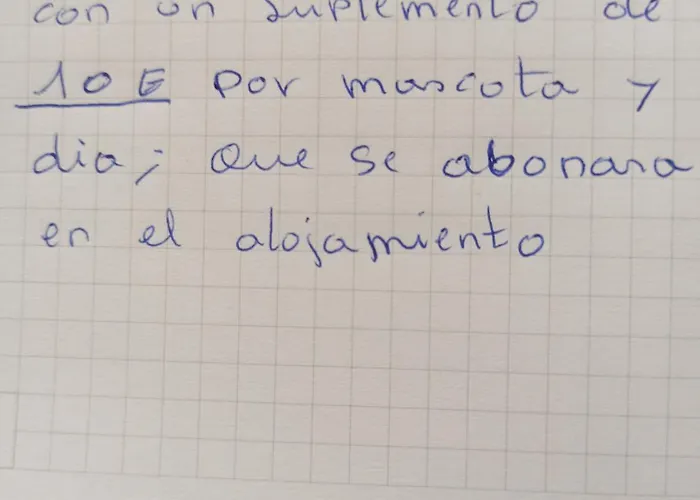 con un suplemento de
10E por mascota y
dia; que se abonara
en el alojamiento